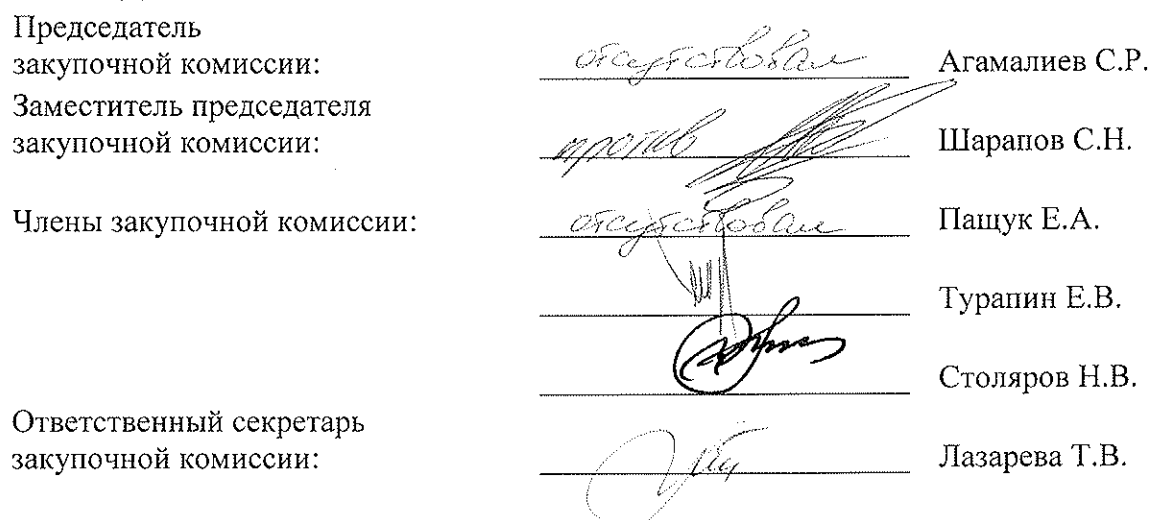 Председатель
закупочной комиссии: отсутствовал Агамалиев С.Р.
Заместитель председателя
закупочной комиссии: против Шарапов С.Н.
Члены закупочной комиссии: отсутствовал Пащук Е.А.
Турапин Е.В.
Столяров Н.В.
Ответственный секретарь
закупочной комиссии: Лазарева Т.В.